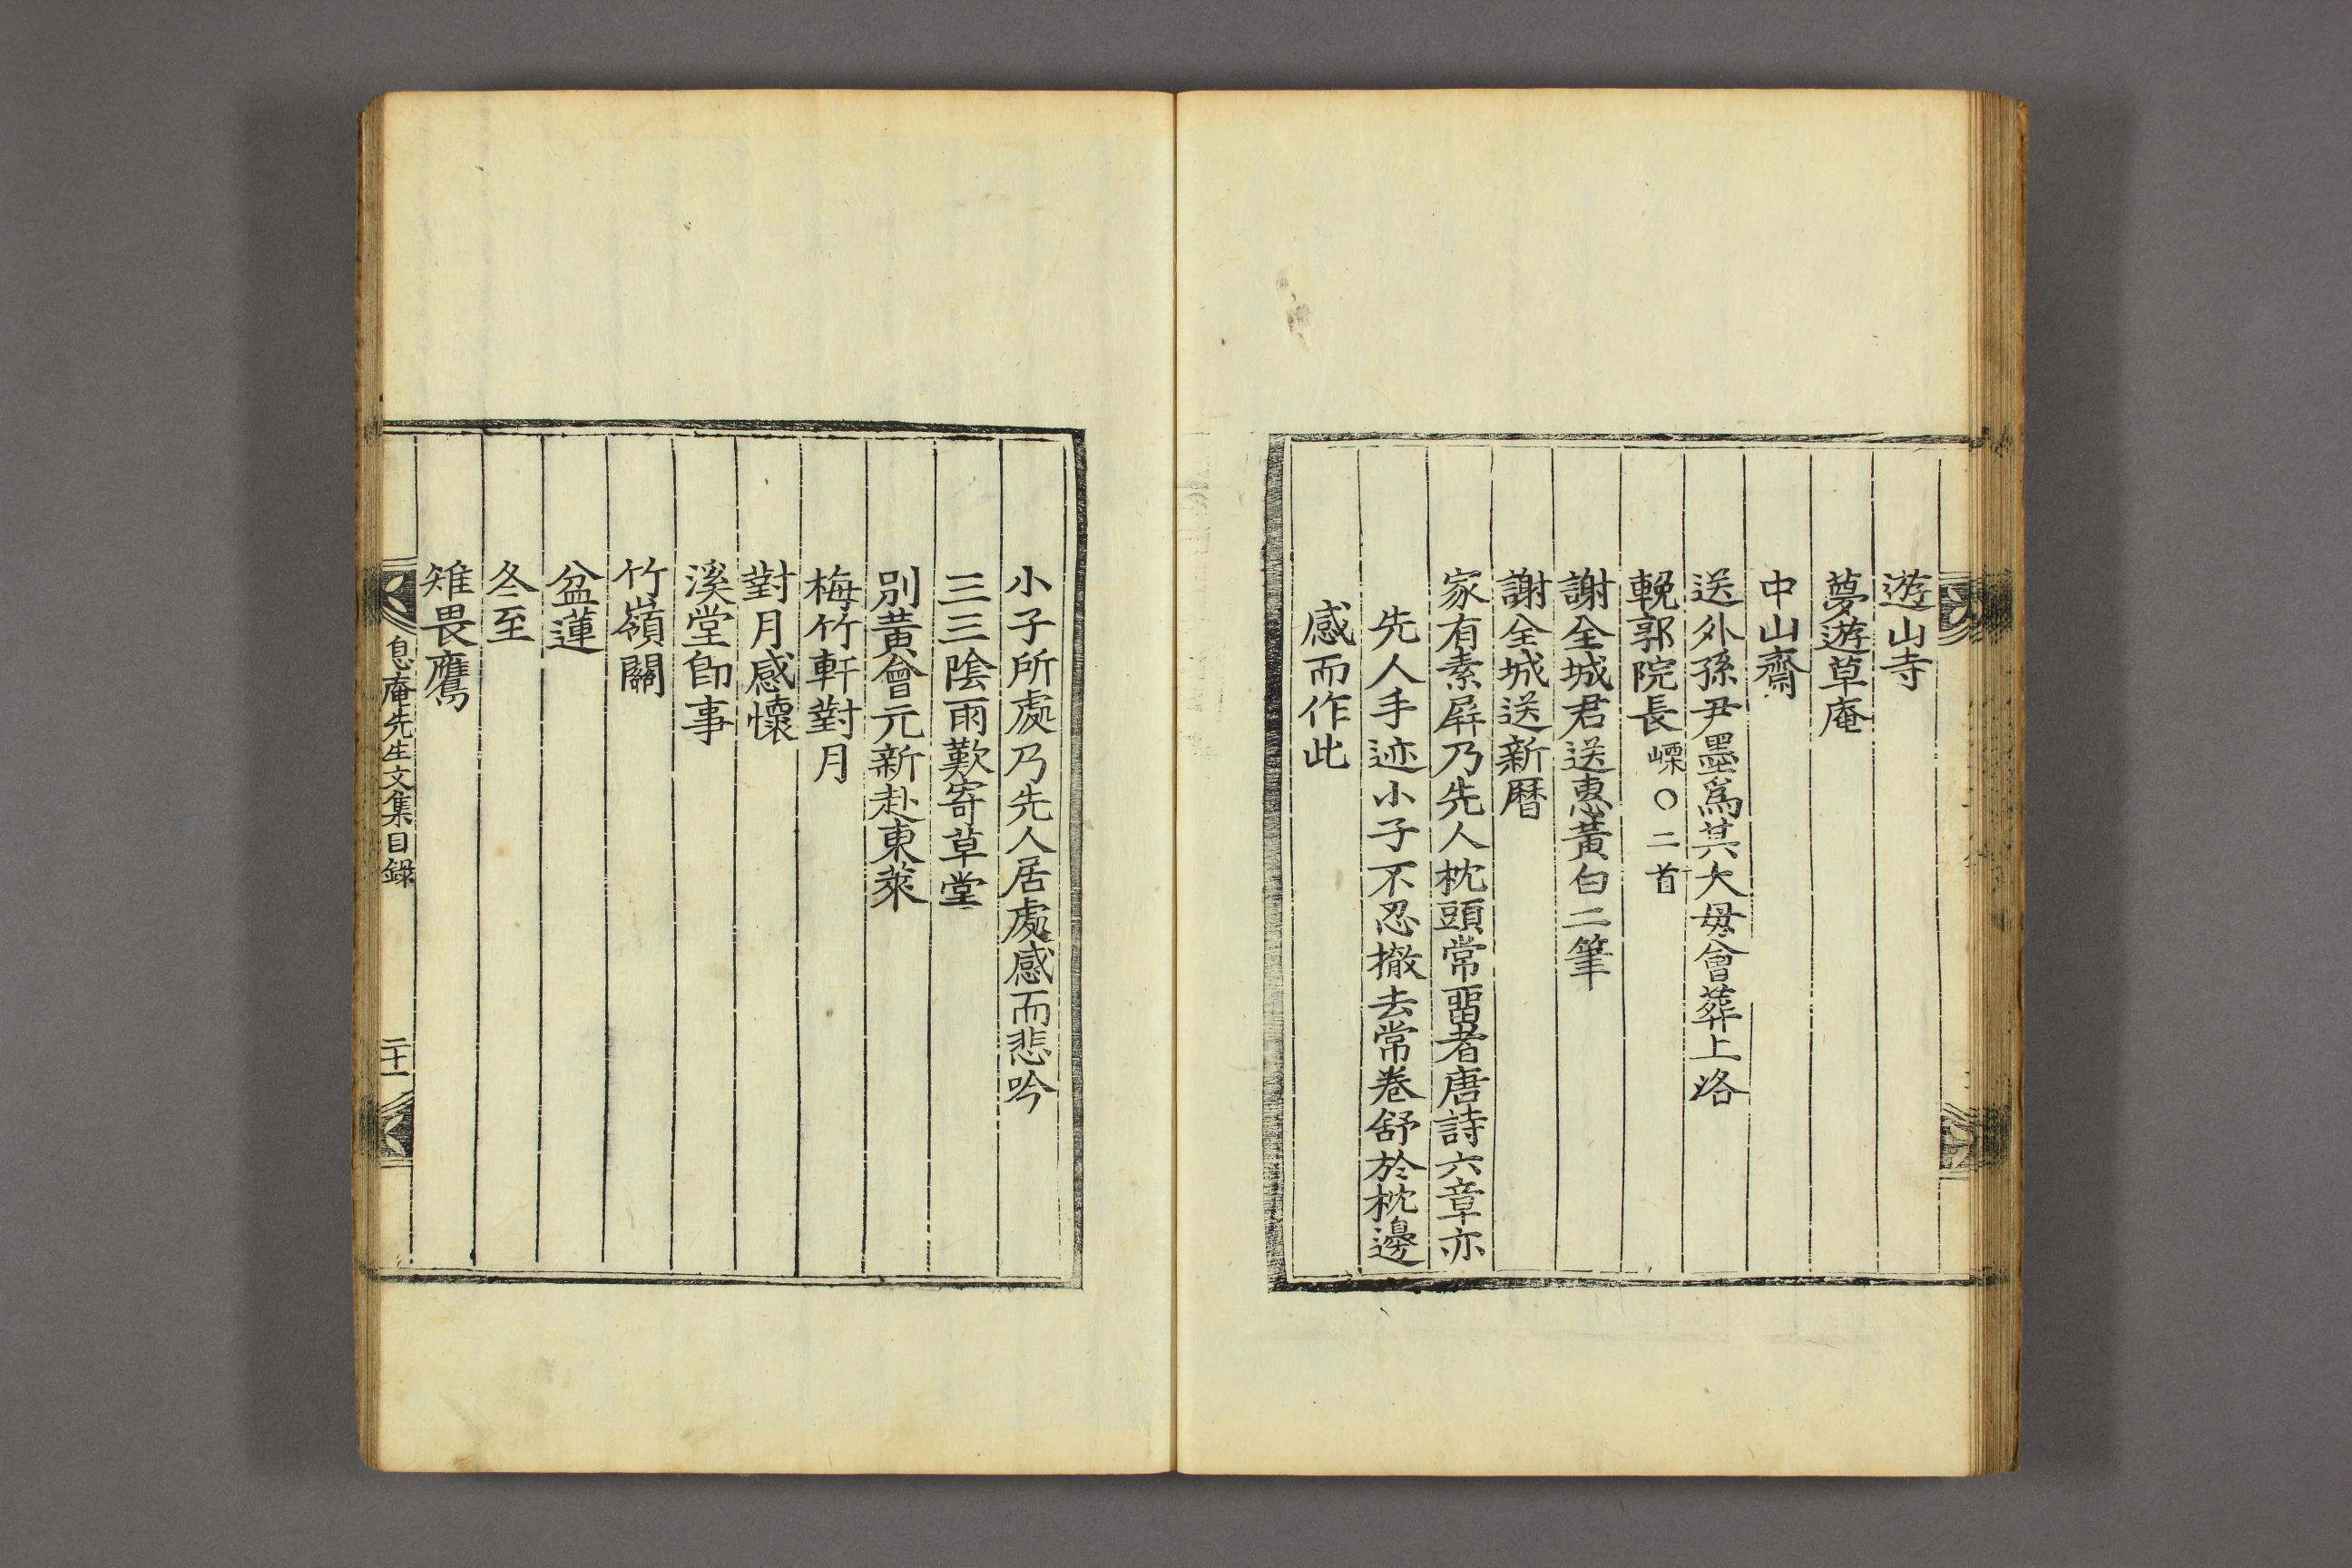 遊山寺
夢遊草庵
中山齋
送外孫尹墨爲其大母會葬上洛
輓郭院長 㠂○二首
謝全城君送惠黃白二筆
謝全城送新曆
家有素屛乃先人枕頭常留者唐詩六章亦
先人手迹小子不忍撤去常卷舒於枕邊
感而作此
小子所處乃先人居處感而悲吟
三三陰雨歎寄草堂
別黃會元新赴東萊
梅竹軒對月
對月感懷
溪堂卽事
竹嶺關
盆蓮
冬至
雉畏鷹
息庵先生文集目錄 二十一